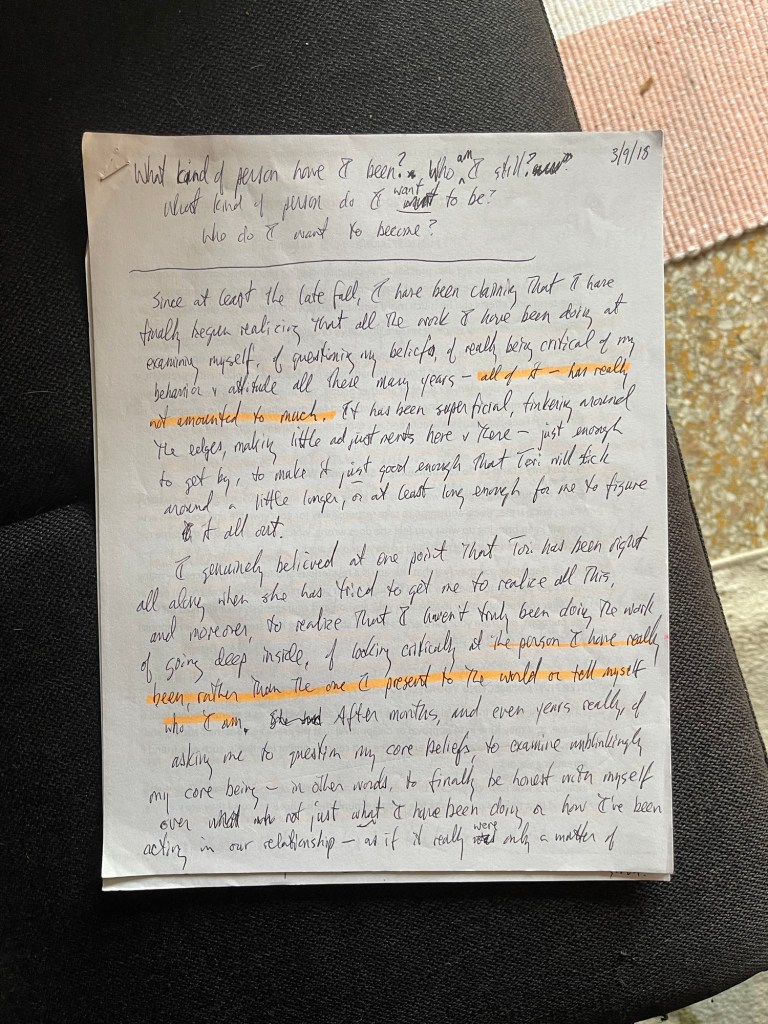 3/9/18
What kind of person have I been? Who am I still?
What kind of person do I want to be?
Who do I want to become?
Since at least the late fall, I have been claiming that I have
finally begun realizing that all the work I have been doing at
examining myself, of questioning my beliefs, of really being critical of my
behavior & attitude all these many years – all of it – has really
not amounted to much. It has been superficial, tinkering around
the edges, making little adjustments here & there – just enough
to get by, to make it just good enough that Tori will stick
around a little longer, or at least long enough for me to figure
it all out.
I genuinely believed at one point that Tori has been right
all along when she has tried to get me to realize all this,
and moreover, to realize that I haven't truly been doing the work
of going deep inside, of looking critically at the person I have really
been, rather than the one I present to the world or tell myself
who I am. After months, and even years really, of
asking me to question my core beliefs, to examine unblinkingly
my core being – in other words, to finally be honest with myself
over not just what I have been doing or how I've been
acting in our relationship – as if it really were only a matter of